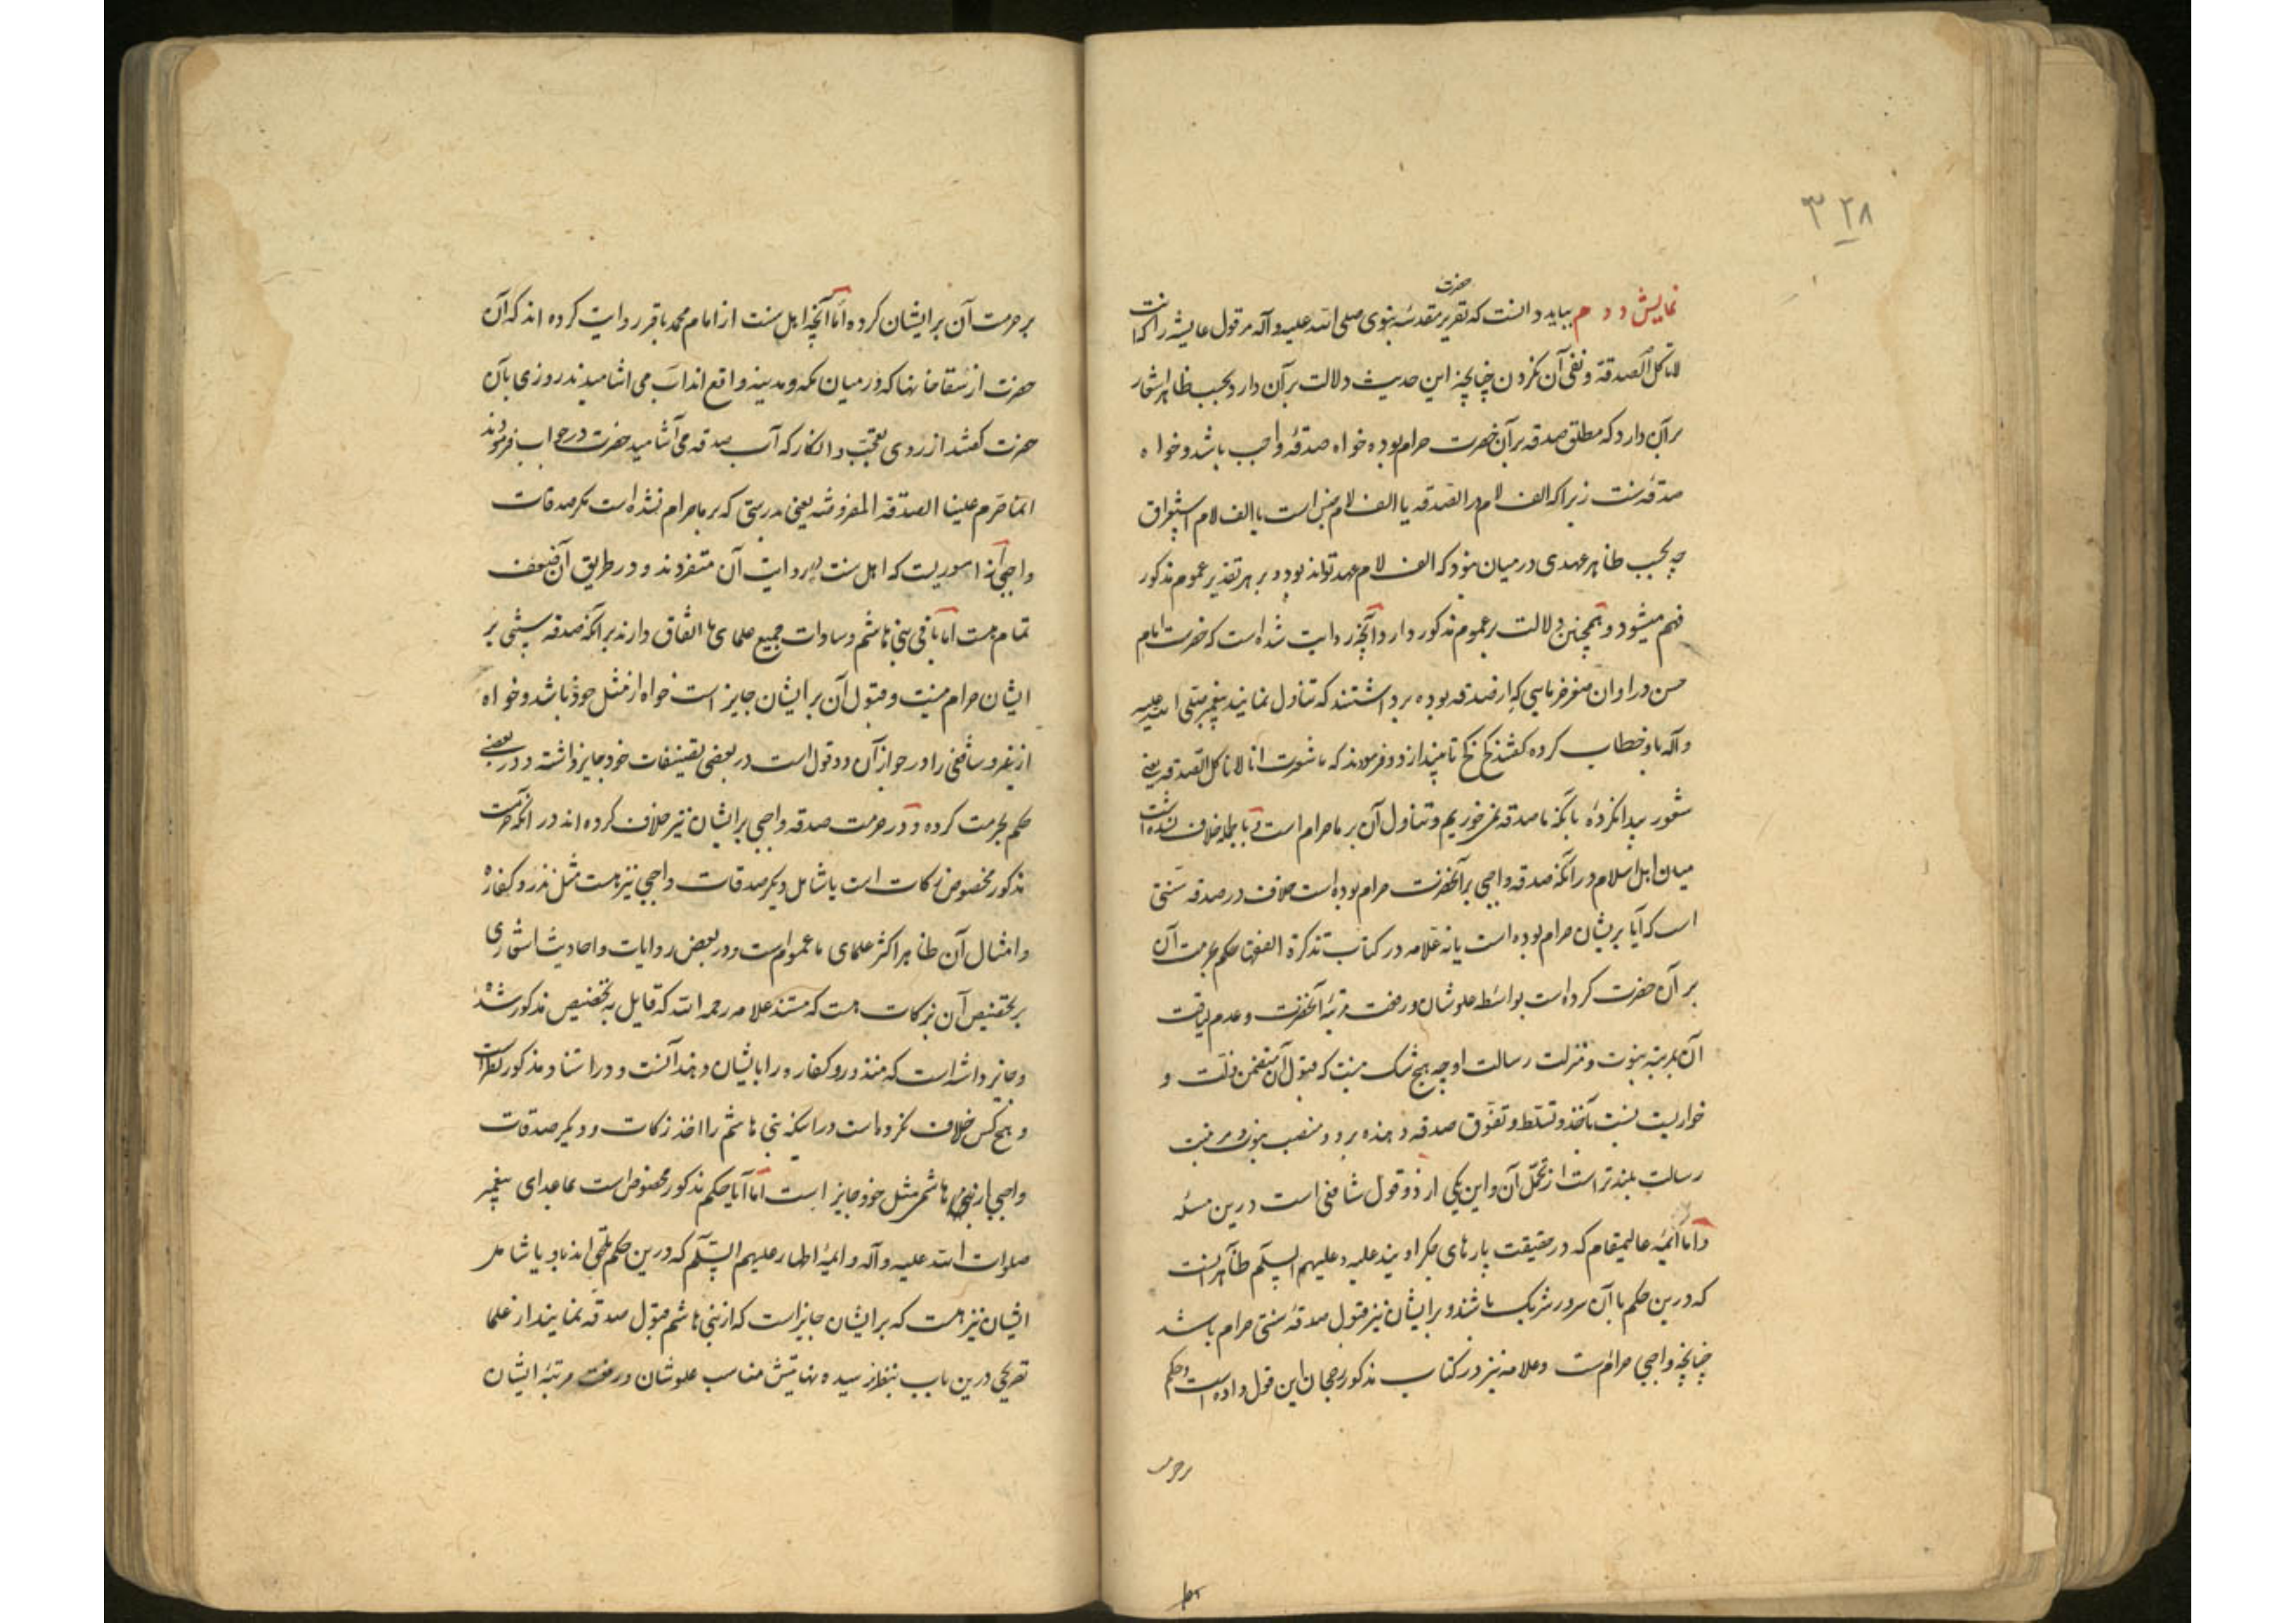 ۳۲۸
حضرت
نمایش دوم بباید دانست که تقریر مقدسه نبوی صلی الله علیه وآله مر قول عایشه را که انت
لا تاکل الصدقة و نفی آن نکردن چنانچه این حدیث دلالت بر آن دارد بحسب ظاهر اشعار
بر آن دارد که مطلق صدقه بر آن حضرت حرام بوده خواه صدقهٔ واجب باشد و خواه
صدقهٔ سنت زیرا که الف لام در الصدقه یا الف لام جنس است یا الف لام استغراق
چه بحسب ظاهر عهدی در میان نبود که الف لام عهد تواند بود و بر هر تقدیر عموم مذکور
فهم میشود و همچنین دلالت بر عموم مذکور دارد آنچه روایت شده است که حضرت امام
حسن در اوان صغر خرمایی که از صدقه بوده برداشتند که تناول نمایند پیغمبر صلی الله علیه
وآله باو خطاب کرده گفتند کخ کخ تا بیندازد و فرمودند که ما شعرت انا لا ناکل الصدقه یعنی
شعور پیدا نکردهٔ بآنکه ما صدقه نمی خوریم و تناول آن بر ما حرام است و بالجمله خلاف نشده است
میان اهل اسلام در آنکه صدقه واجبی بر آنحضرت حرام بوده است خلاف در صدقه سنتی
است که آیا بریشان حرام بوده است یا نه علامه در کتاب تذکرة الفقها حکم بحرمت آن
بر آن حضرت کرده است بواسطه علو شان و رفعت مرتبهٔ آنحضرت و عدم لیاقت
آن بمرتبه نبوت و منزلت رسالت او چه هیچ شک نیست که قبول آن متضمن ذلت و
خواریست نسبت بآخذ و تسلط و تفوق صدقه دهنده برو و منصب نبوت و مرتبت
رسالت بلندتر است از تحمل آن و این یکی از دو قول شافعی است درین مسئله
و اما ائمهٔ عالیمقام که در حقیقت پارهای جگر اویند علیه و علیهم السلم ظاهر انست
که درین حکم با آن سرور شریک باشند و بر ایشان نیز قبول صدقهٔ سنتی حرام باشد
چنانچه واجبی حرامست و علامه نیز در کتاب مذکور رجحان این قول داده است و حکم
بر حرمت
بر حرمت آن بر ایشان کرده اما آنچه اهل سنت از امام محمد باقر روایت کرده اند که آن
حضرت از سقاخانها که در میان مکه و مدینه واقع اند آب می اشامیدند روزی بآن
حضرت گفتند از روی تعجب و انکار که آب صدقه می آشامید حضرت در جواب فرمودند
انما حرم علینا الصدقة المفروضه یعنی بدرستی که بر ما حرام نشده است مگر صدقات
واجبی آن امریست که اهل سنت بروایت آن متفردند و در طریق آن ضعف
تمام هست اما باقی بنی هاشم و سادات جمیع علمای ما اتفاق دارند بر آنکه صدقه سنتی بر
ایشان حرام نیست و قبول آن بر ایشان جایز است خواه از مثل خود باشد و خواه
از غیر و شافعی را در جواز آن دو قول است در بعضی تصنیفات خود جایز داشته و در بعضی
حکم بحرمت کرده و در حرمت صدقه واجبی بر ایشان نیز خلاف کرده اند در آنکه حرمت
مذکور مخصوص زکات است یا شامل دیگر صدقات واجبی نیز هست مثل نذر و کفاره
و امثال آن ظاهر اکثر علمای ما عموم است و در بعض روایات و احادیث اشعاری
بر تخصیص آن بزکات هست که مستند علامه رحمه الله که قایل به تخصیص مذکور شده
و جایز داشته است که منذور و کفاره را بایشان دهند آنست و در استناد مذکور نظر است
و هیچ کس خلاف نکرده است در اینکه بنی هاشم را اخذ زکات و دیگر صدقات
واجبی از بنی هاشم مثل خود جایز است اما آیا حکم مذکور مخصوص است بماعدای پیغمبر
صلوات الله علیه وآله و ائمهٔ اطهار علیهم السلم که درین حکم ملحق اند باو یا شامل
ایشان نیز هست که بر ایشان جایز است که از بنی هاشم قبول صدقه نمایند از علما
تصریحی درین باب بنظر نرسیده نهایتش مناسب علو شان و رفعت مرتبهٔ ایشان